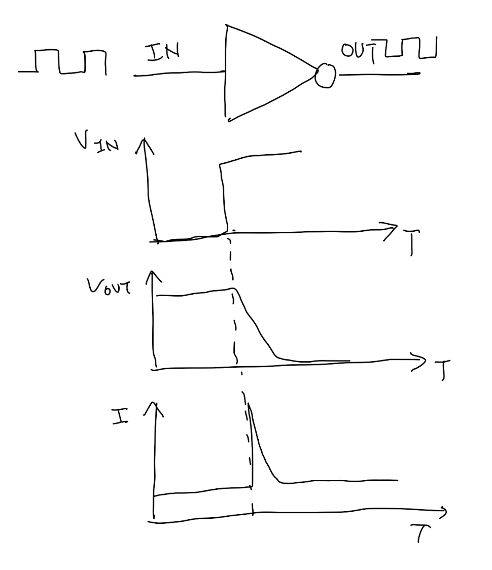 IN OUT
VIN
T
VOUT
T
I
T